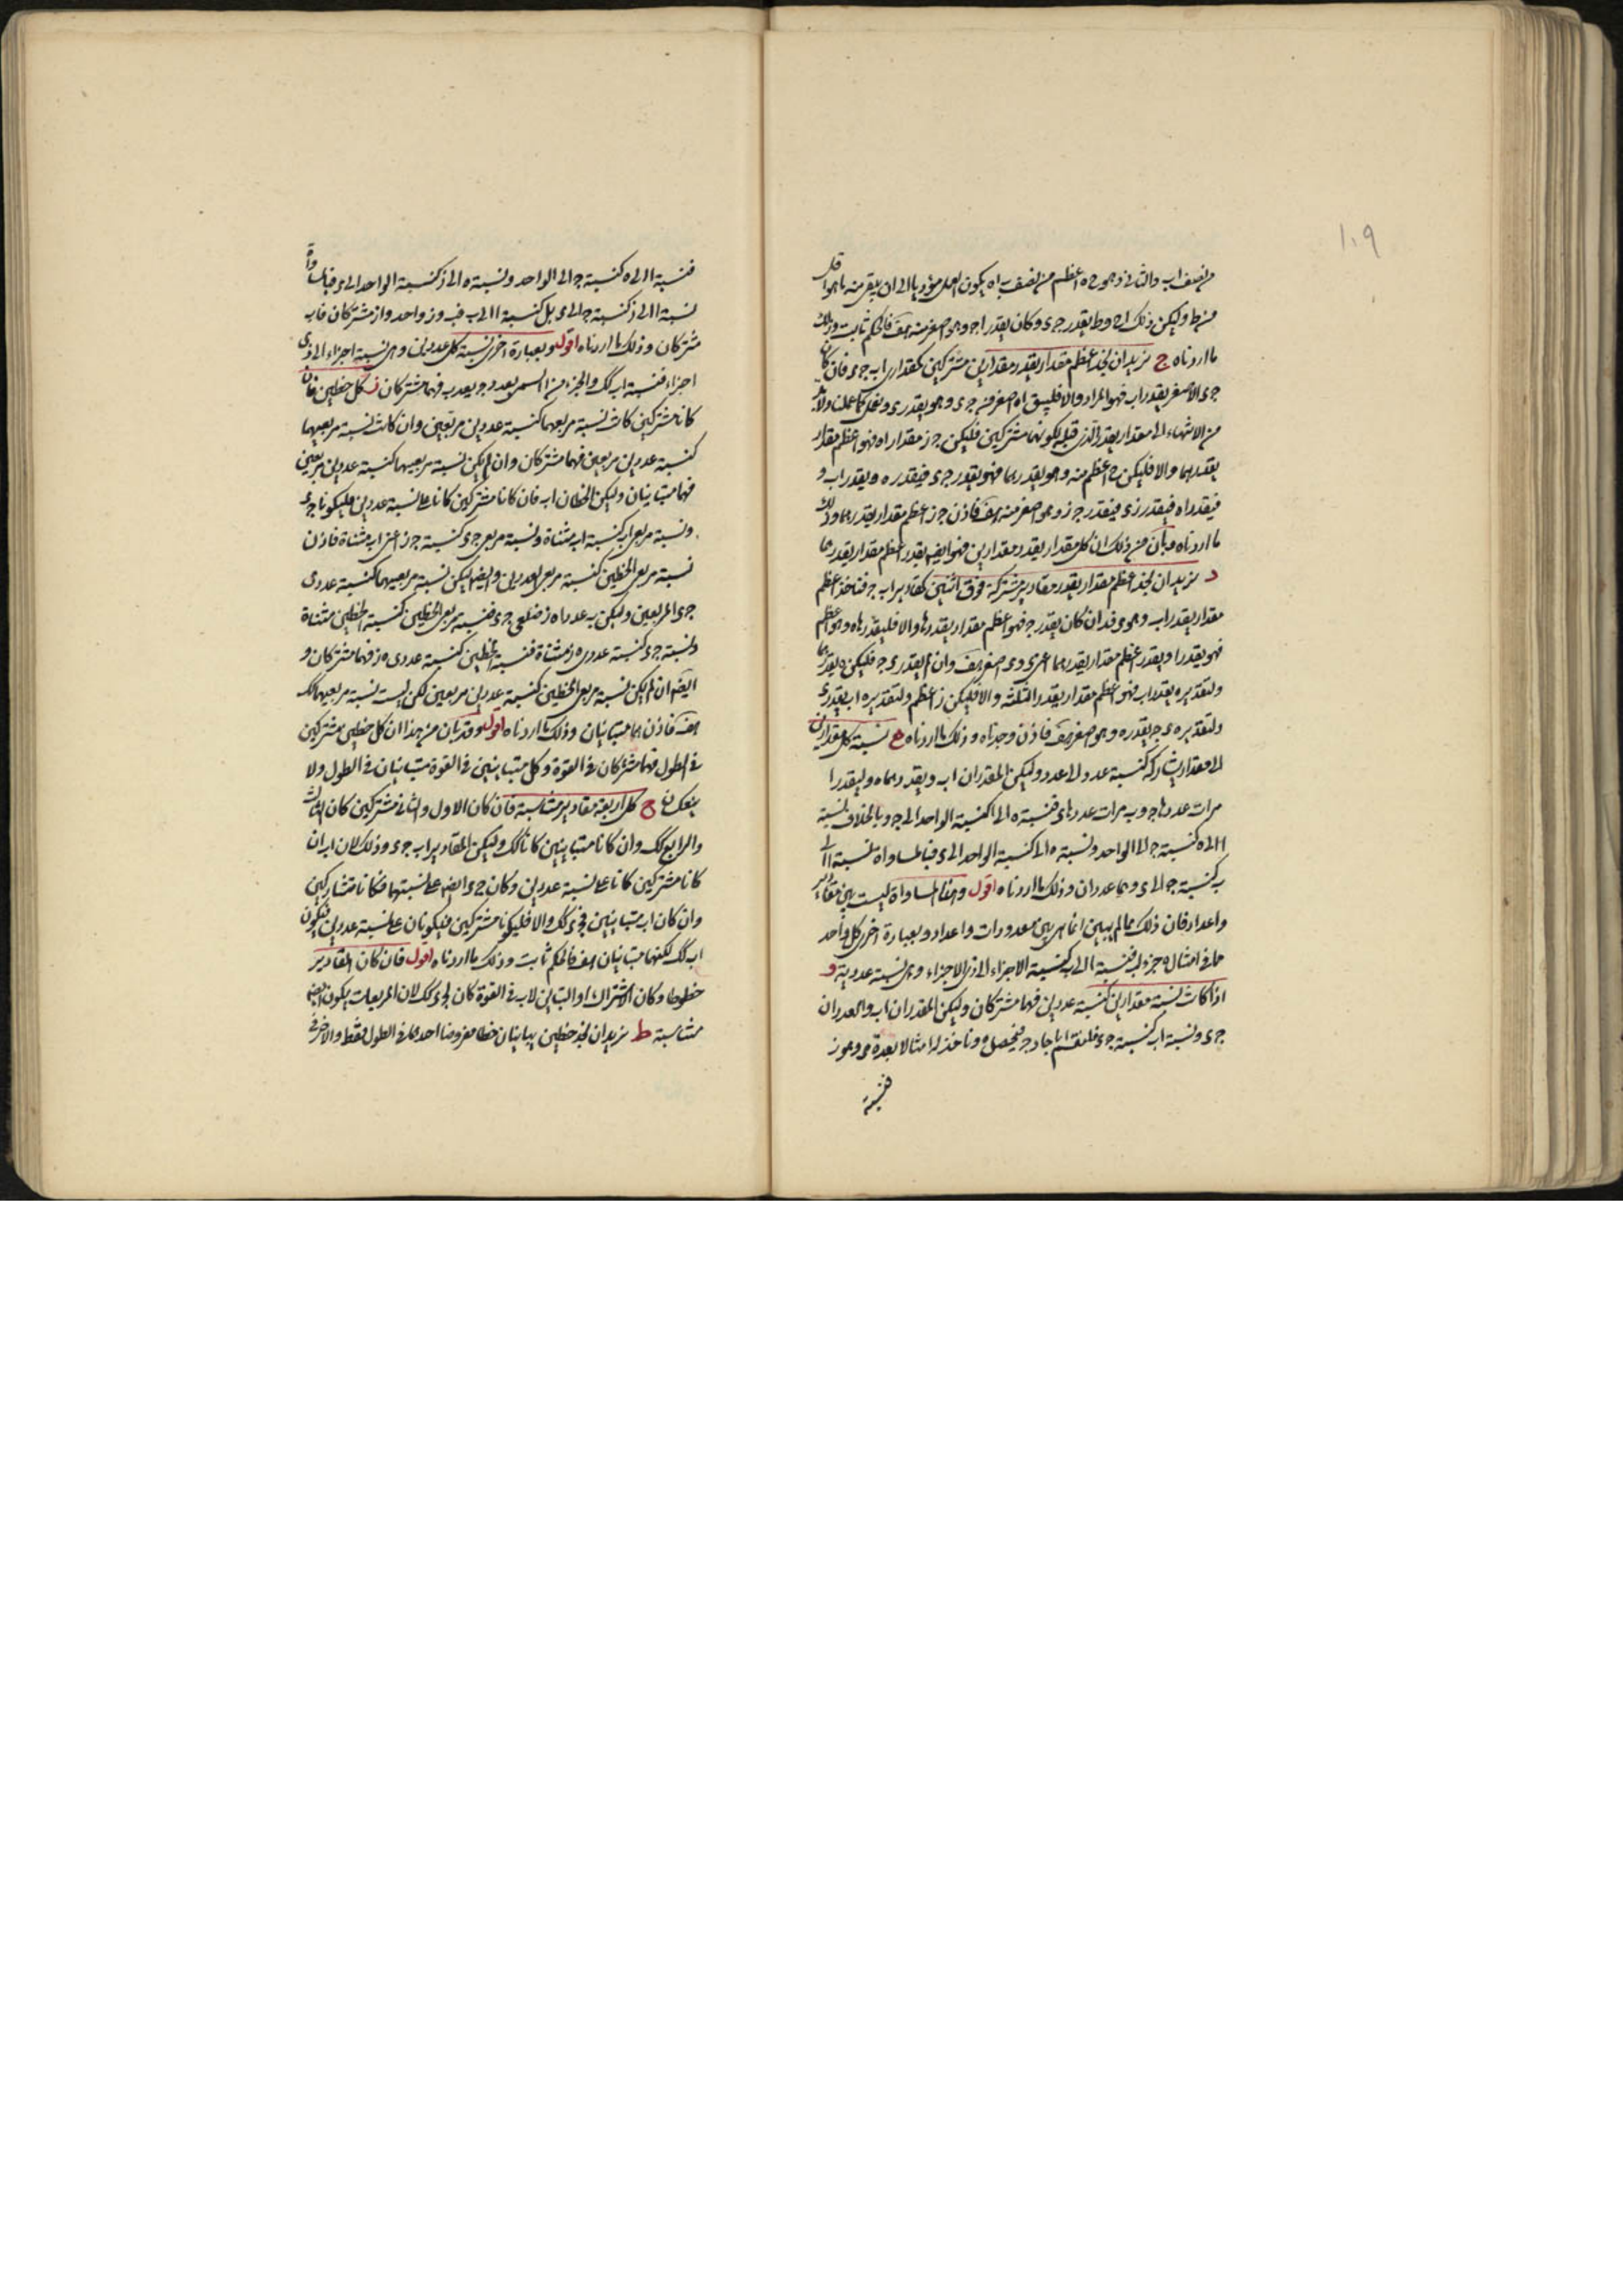 ١٠٩
من نصف اب والثانى وهو ح ه اعظم من نصف اه يكون العمل مؤديا الى ان يبقى منه ما هو اقل
من ط وليكن ذلك اح وط يقدر جد وكان يقدر اح وهو اصغر منه هف فالحكم ثابت وذلك
ما اردناه ج نريد ان نجد اعظم مقدار يقدر مقدارين مشتركين كمقدارى اب جد فان كان
جد الاصغر يقدر اب فهو المراد والا فليبق اه اصغر من جد وهو يقدر ى ونعمل كما عملنا ولابد
من الانتهاء الى مقدار يقدر الذى قبله لكونهما مشتركين فليكن جز مقدار اه فهو اعظم مقدار
يقدرهما والا فليكن ح اعظم منه وهو يقدرهما فهو يقدر جد فيقدر ه ويقدر اب و
فيقدر اه فيقدر زد فيقدر جز وهو اصغر منه هف فاذن جز اعظم مقدار يقدرهما وذلك
ما اردناه وبان من ذلك ان كل مقدار يقدر مقدارين فهو ايضا يقدر اعظم مقدار يقدرهما
د نريد ان نجد اعظم مقدار يقدر مقادير مشتركة فوق اثنين كمقادير اب ج فناخذ اعظم
مقدار يقدر اب وهو د فد ان كان يقدر ج فهو اعظم مقدار يقدرها والا فليقدرها ه وهو اعظم
فهو يقدر ا ويقدر اعظم مقدار يقدرهما اعنى د و د اصغر هف وان لم يقدر د ج فليكن ه يقدرهما
ولتقديره د يقدر اب فهو اعظم مقدار يقدر الثلثة والا فليكن ز اعظم ولتقديره اب يقدر د
ولتقديره د ج يقدر ه وهو اصغر هف فاذن وجدناه وذلك ما اردناه ه نسبة كل مقدار
الى مقدار يشاركه كنسبة عدد الى عدد وليكن المقداران اب ويقدرهما ه وليقدر ا
مرات عددها ج و ب مرات عددها د فنسبة ه الى ا كنسبة الواحد الى ج وبالخلاف نسبة
ا الى ه كنسبة ج الى الواحد ونسبة ه الى ب كنسبة الواحد الى د فبالمساواة نسبة ا الى
ب كنسبة ج الى د وهما عددان وذلك ما اردناه اقول وهذه المساواة ليست بين مقادير
واعداد فان ذلك مما لم يبين انما هى بين معدودات واعداد وبعبارة اخرى كل واحد
مما فى امثال ه جزء له فنسبة ا الى ب كنسبة الاجزاء الى الاجزاء وهى نسبة عددية و
اذا كانت نسبة مقدارين كنسبة عددين فهما مشتركان وليكن المقداران اب والعددان
جد ونسبة اب كنسبة جد فلنقسم ا باحاد ج فيحصل ه وناخذ له امثالا بعدة د وهو ز
فنسبة
فنسبة ا الى ه كنسبة ج الى الواحد ونسبة ه الى ز كنسبة الواحد الى د فبالمساواة
نسبة ا الى ز كنسبة ج الى د بل كنسبة ا الى ب فب وز واحد واز مشتركان فاب
مشتركان وذلك ما اردناه اقول وبعبارة اخرى نسبة كل عددين وهى نسبة اجزاء الى
اجزاء فنسبة اب كك والجزء من ا بعدد ج يعد ب فهما مشتركان ز كل خطين فان
كانا مشتركين كانت نسبة مربعيهما كنسبة عددين مربعين وان كانت نسبة مربعيهما
كنسبة عددين مربعين فهما مشتركان وان لم يكن نسبة مربعيهما كنسبة عددين مربعين
فهما متباينان وليكن الخطان اب فان كانا مشتركين كانا على نسبة عددين فليكونا جد
ونسبة مربعى اب كنسبة اب مثناة ونسبة مربعى جد كنسبة جد اعنى اب مثناة فاذن
نسبة مربعى الخطين كنسبة مربعى العددين وايضا ليكن نسبة مربعيهما كنسبة عددى
جد المربعين وليكن به عددا ه ز ضلعى جد فنسبة مربعى الخطين كنسبة الخطين مثناة
ونسبة جد كنسبة عددى ه ز مثناة فنسبة الخطين كنسبة عددى ه ز فهما مشتركان و
ايضا ان لم يكن نسبة مربعى الخطين كنسبة عددين مربعين لكن ليست نسبة مربعيهما كك
هف فاذن هما متباينان وذلك ما اردناه اقول وقد بان من هذا ان كل خطين مشتركين
فى الطول فهما مشتركان فى القوة وكل متباينين فى القوة متباينان فى الطول ولا
ينعكس ح كل اربعة مقادير متناسبة فان كان الاول والثانى مشتركين كان الثالث
والرابع كك وان كانا متباينين كانا كك وليكن المقادير اب جد وذلك لان اب ان
كانا مشتركين كانا على نسبة عددين وكان جد ايضا على نسبتهما فكانا متشاركين
وان كان اب متباينين فجد كك والا فليكونا مشتركين فيكونان على نسبة عددين فيكون
اب كك لكنهما متباينان هف فالحكم ثابت وذلك ما اردناه اقول فان كان المقادير
خطوطا وكان الاشتراك او التباين لاب فى القوة كان لجد كك لان المربعات يكون ايضا
متناسبة ط نريد ان نجد خطين يباينان خطا مفروضا احدهما فى الطول فقط والاخر فى